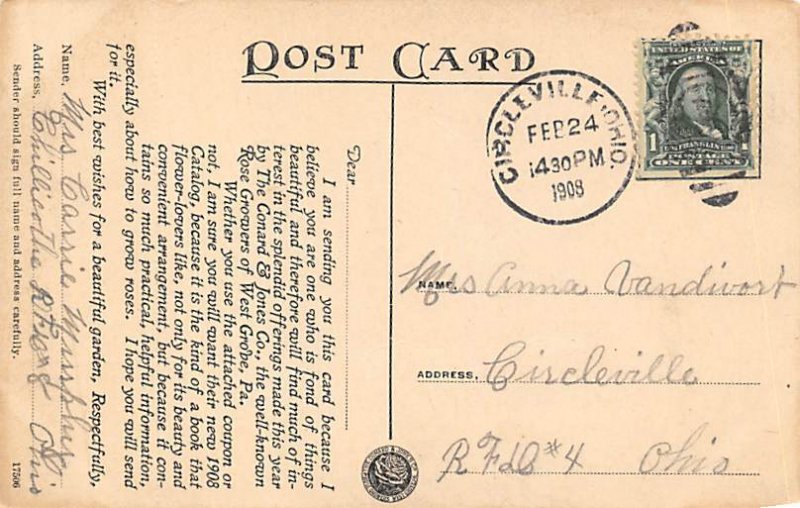 POST CARD
Dear
I am sending you this card because I
believe you are one who is fond of things
beautiful and therefore will find much of in-
terest in the splendid offerings made this year
by The Conard & Jones Co., the well-known
Rose Growers of West Grove, Pa.
Whether you use the attached coupon or
not, I am sure you will want their new 1908
Catalog, because it is the kind of a book that
flower-lovers like, not only for its beauty and
convenient arrangement, but because it con-
tains so much practical, helpful information
especially about how to grow roses. I hope you will send
for it.
With best wishes for a beautiful garden, Respectfully,
Name, Mrs Carrie
Address, Chillicothe Ohio
Sender should sign full name and address carefully.
17506
CIRCLEVILLE, OHIO.
FEB 24
1430PM
1908
UNITED STATES OF
AMERICA
1 FRANKLIN 1
POSTAGE
ONE CENT
NAME, Mrs Anna Vandivort
ADDRESS, Circleville
RFD #4 Ohio